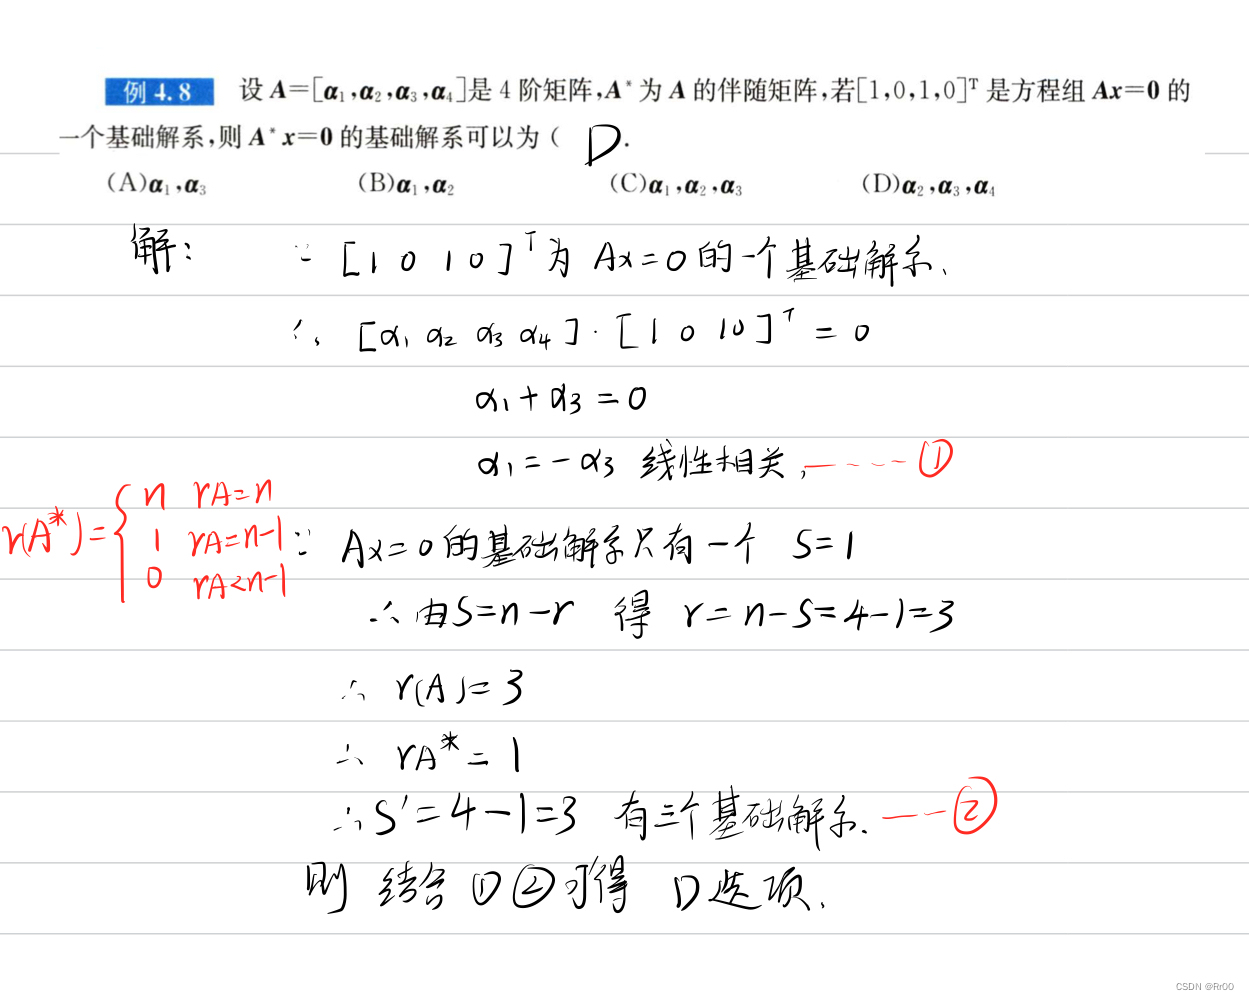 例 4.8 设 A=[α₁,α₂,α₃,α₄]是 4 阶矩阵,A* 为 A 的伴随矩阵,若[1,0,1,0]ᵀ 是方程组 Ax=0 的
一个基础解系,则 A*x=0 的基础解系可以为( D.
(A)α₁,α₃ (B)α₁,α₂ (C)α₁,α₂,α₃ (D)α₂,α₃,α₄
解: ∵ [1 0 1 0]ᵀ为 Ax=0的一个基础解系、
∴ [α₁ α₂ α₃ α₄]·[1 0 1 0]ᵀ = 0
α₁+α₃=0
α₁=-α₃ 线性相关, ----①
r(A*)={ n rA=n
1 rA=n-1
0 rA<n-1
∵ Ax=0的基础解系只有一个 S=1
∴由S=n-r 得 r=n-S=4-1=3
∴ r(A)=3
∴ rA*=1
∴S'=4-1=3 有三个基础解系. --②
则 结合①②可得 D选项.
CSDN @Rr00